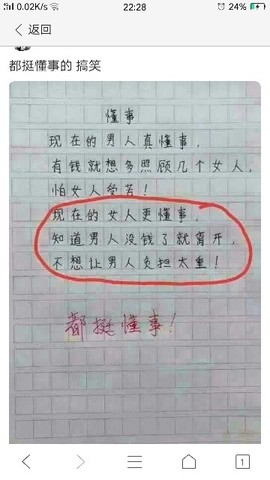 0.02K/s
22:28
24%
返回
都挺懂事的 搞笑
懂事
现在的男人真懂事,
有钱就想多照顾几个女人,
怕女人受苦!
现在的女人更懂事,
知道男人没钱了就离开,
不想让男人负担太重!
都挺懂事!
1